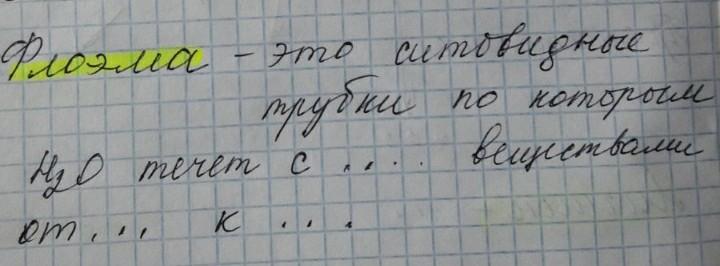 Флоэма - это ситовидные
трубки по которым
H₂O течет с .... веществами
от ... к ....